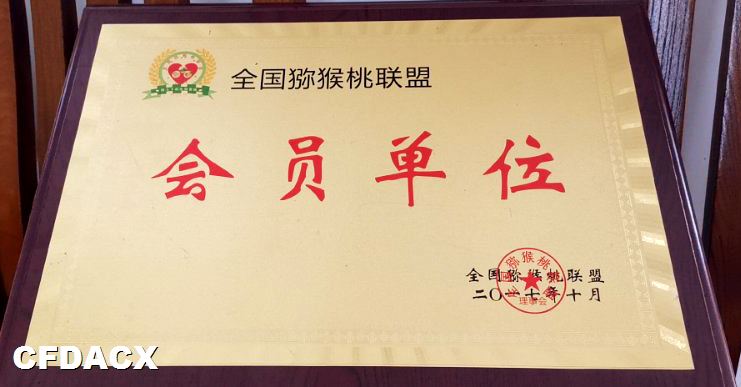 全国猕猴桃联盟
会员单位
全国猕猴桃联盟
二〇一七年十月
理事会
CFDACX